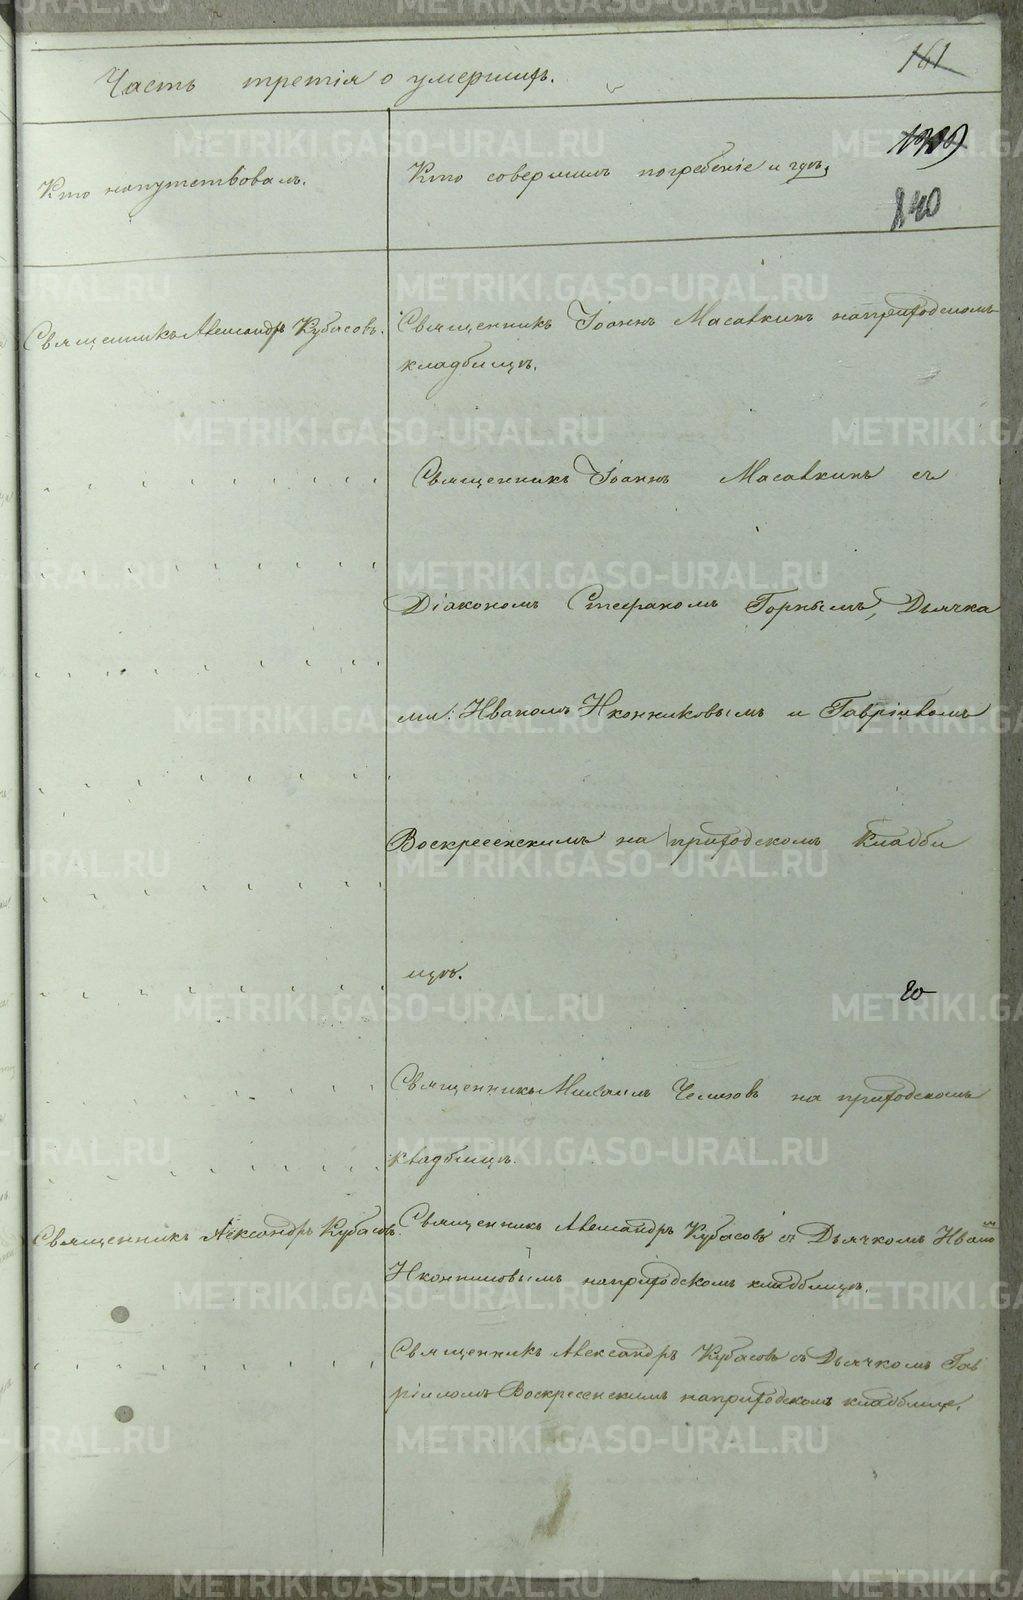 161
Часть третія о умершихъ.
840
Кто напутствовалъ.
Кто совершилъ погребеніе и гдѣ,
Священникъ Александръ Кубасовъ.
Священникъ Іоаннъ Масалкинъ на приходскомъ
кладбищѣ.
Священникъ Іоаннъ Масалкинъ съ
Діакономъ Стефаномъ Горнымъ, Дьячка
ми: Иваномъ Иконниковымъ и Гавріиломъ
Воскресенскимъ на приходскомъ Кладби
щѣ.
Священникъ Михаилъ на приходскомъ
кладбищѣ.
Священникъ Александръ Кубасовъ
Священникъ Александръ Кубасовъ съ Дьячкомъ Иваномъ
Иконниковымъ на приходскомъ кладбищѣ.
Священникъ Александръ Кубасовъ съ Дьячкомъ Гав
ріиломъ Воскресенскимъ на приходскомъ кладбище.
METRIKI.GASO-URAL.RU